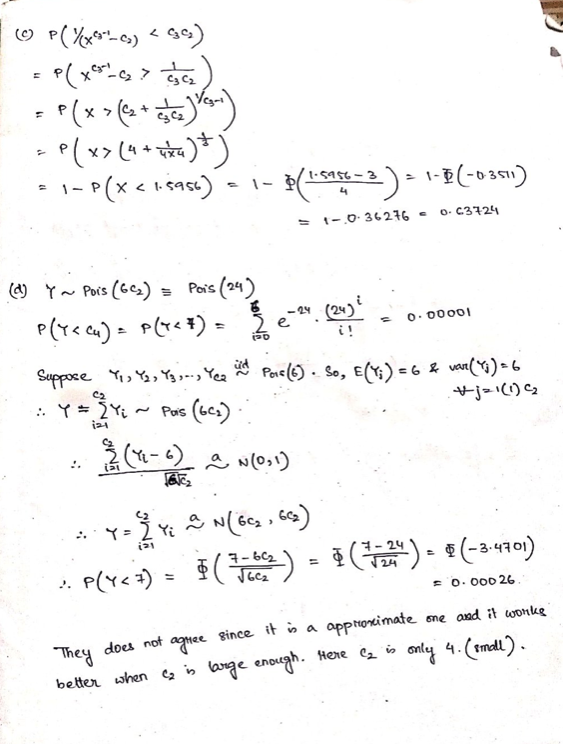 (c) P(1/(x^(c₃-1) - c₂) < c₃c₂)
= P(x^(c₃-1) - c₂ > 1/(c₃c₂))
= P(x > (c₂ + 1/(c₃c₂))^(1/(c₃-1)))
= P(x > (4 + 1/(4×4))^(1/3))
= 1 - P(X < 1.5956) = 1 - Φ((1.5956 - 3)/4) = 1 - Φ(-0.3511)
= 1 - 0.36276 = 0.63724
(d) Y ~ Pois(6c₂) ≡ Pois(24)
P(Y < c₄) = P(Y < 7) = Σ_{i=0}^{6} e^(-24) · (24)^i / i! = 0.00001
Suppose Y₁, Y₂, Y₃, .., Y_{c₂} iid ~ Pois(6). So, E(Yⱼ) = 6 & var(Yⱼ) = 6
∀ j = 1(1) c₂
∴ Y = Σ_{i=1}^{c₂} Yᵢ ~ Pois(6c₂).
∴ Σ_{i=1}^{c₂} (Yᵢ - 6) / √6c₂ a~ N(0,1)
∴ Y = Σ_{i=1}^{c₂} Yᵢ a~ N(6c₂, 6c₂)
∴ P(Y < 7) = Φ((7 - 6c₂)/√6c₂) = Φ((7 - 24)/√24) = Φ(-3.4701)
= 0.00026.
They does not agree since it is a approximate one and it works
better when c₂ is large enough. Here c₂ is only 4. (small).